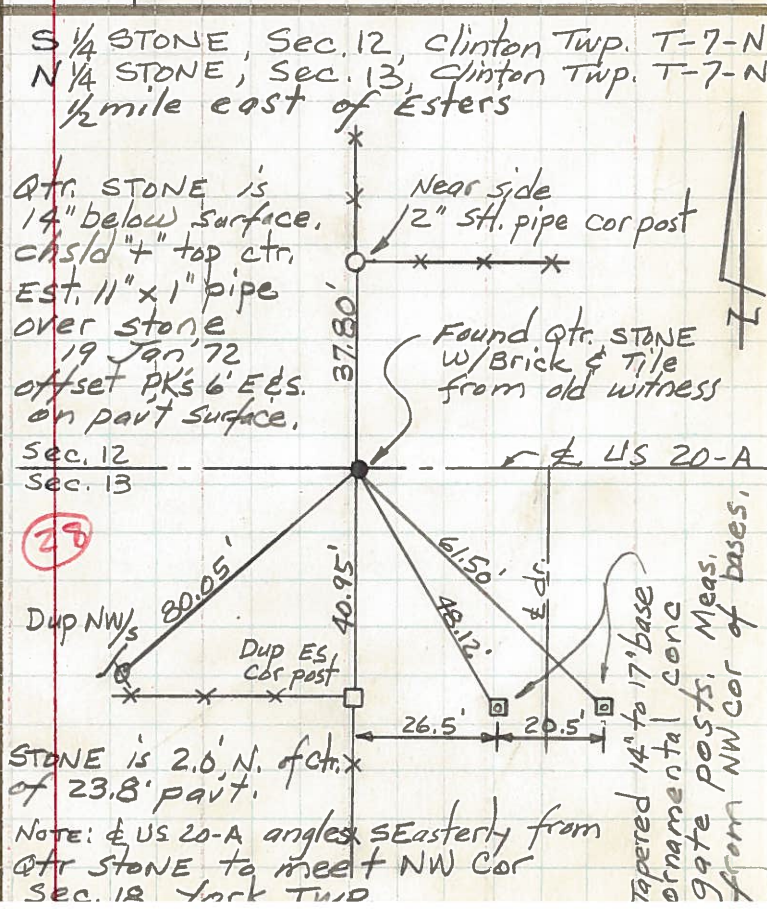 S 1/4 STONE, Sec. 12, Clinton Twp. T-7-N
N 1/4 STONE, Sec. 13, Clinton Twp. T-7-N
1/2 mile east of Esters
Qtr. STONE is
14" below surface.
chsld "+" top ctr.
Est. 11" x 1" pipe
over stone
19 Jan '72
offset PK's 6' E & S.
on pav't surface.
Near side
2" Stl. pipe cor post
37.80'
Found Qtr. STONE
W/Brick & Tile
from old witness
N
Sec. 12
Sec. 13
℄ US 20-A
28
80.05'
40.95'
48.12'
61.50'
℄ dr.
Dup NW/s
Dup Es
Cor post
26.5'
20.5'
Tapered 14" to 17" base
ornamental conc
gate posts. Meas.
from NW Cor of bases.
STONE is 2.0' N. of ctr.
of 23.8' pav't.
NOTE: ℄ US 20-A angles SEasterly from
Qtr STONE to meet NW Cor
Sec. 18 York TWP